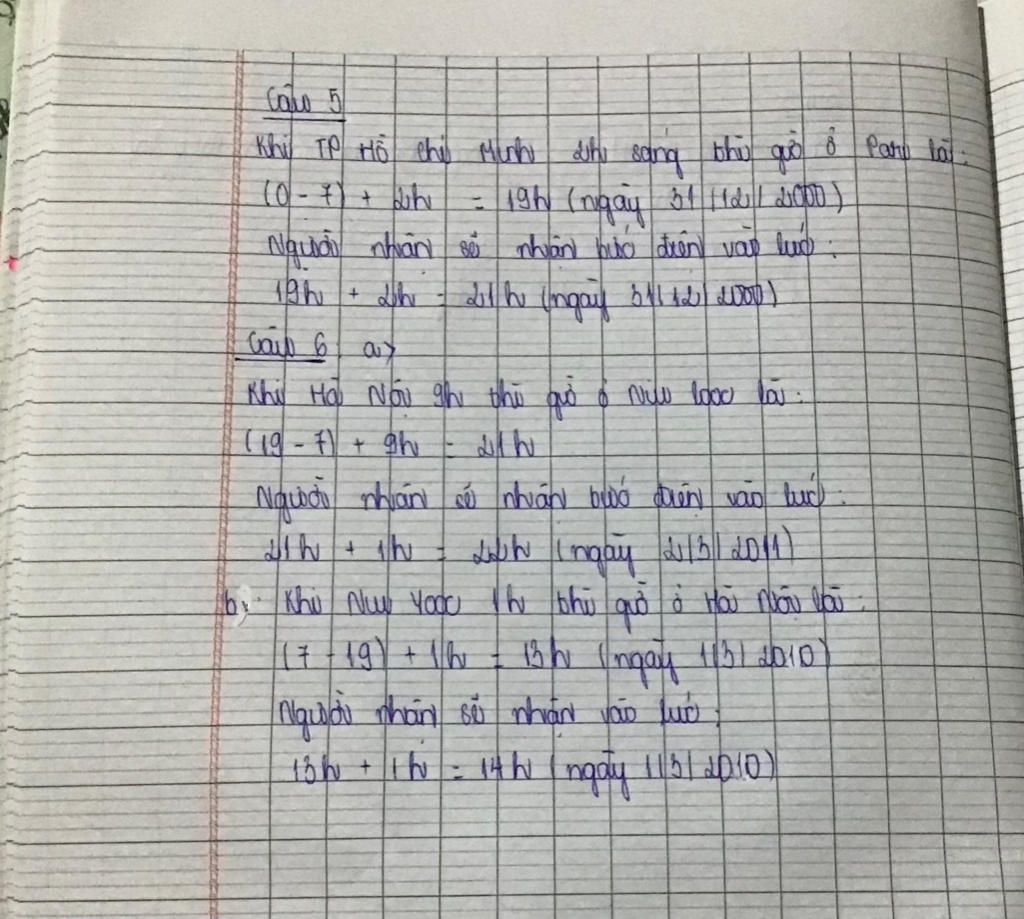 Câu 5
Khi TP Hồ Chí Minh 2h sáng thì giờ ở Pari là:
(0 - 7) + 2h = 19h (ngày 31/12/2000)
Người nhận sẽ nhận bức điện vào lúc:
19h + 2h = 21h (ngày 31/12/2000)
Câu 6 a>
Khi Hà Nội 9h thì giờ ở Niu Iooc là:
(19 - 7) + 9h = 21h
Người nhận sẽ nhận bức điện vào lúc:
21h + 1h = 22h (ngày 2/3/2011)
b, Khi Niu Yooc 1h thì giờ ở Hà Nội là:
(7 - 19) + 1h = 13h (ngày 1/3/2010)
Người nhận sẽ nhận vào lúc:
13h + 1h = 14h (ngày 1/3/2010)